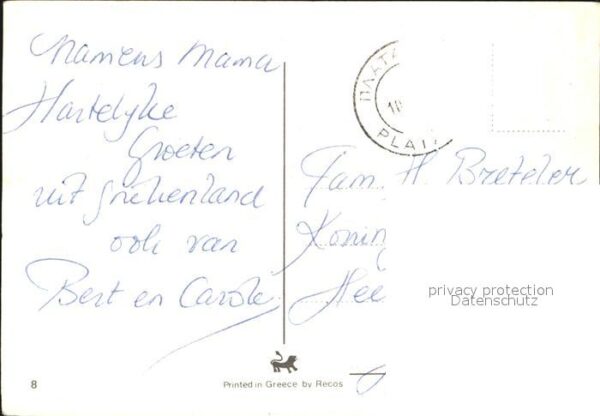 Namens Mama
Hartelyke
Groeten
uit Griekenland
ook van
Bert en Carola
ΠΛΑΤΑ
18
PLAT
Fam. H. Breteler
Konin
Hee
privacy protection
Datenschutz
8
Printed in Greece by Recos